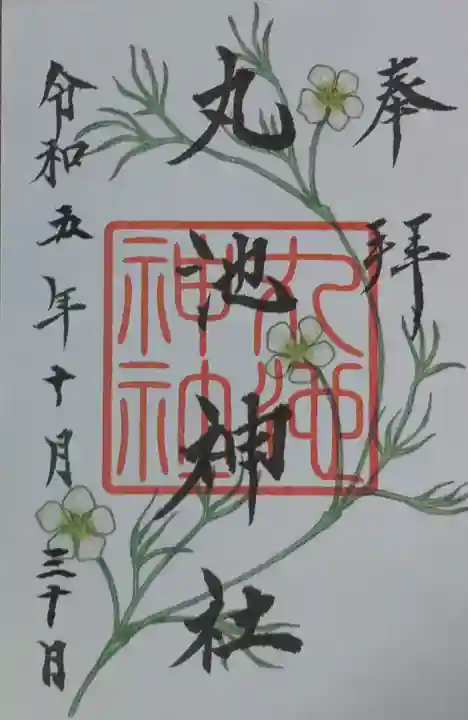 奉拝
丸池神社
丸池神社
令和五年十月三十日